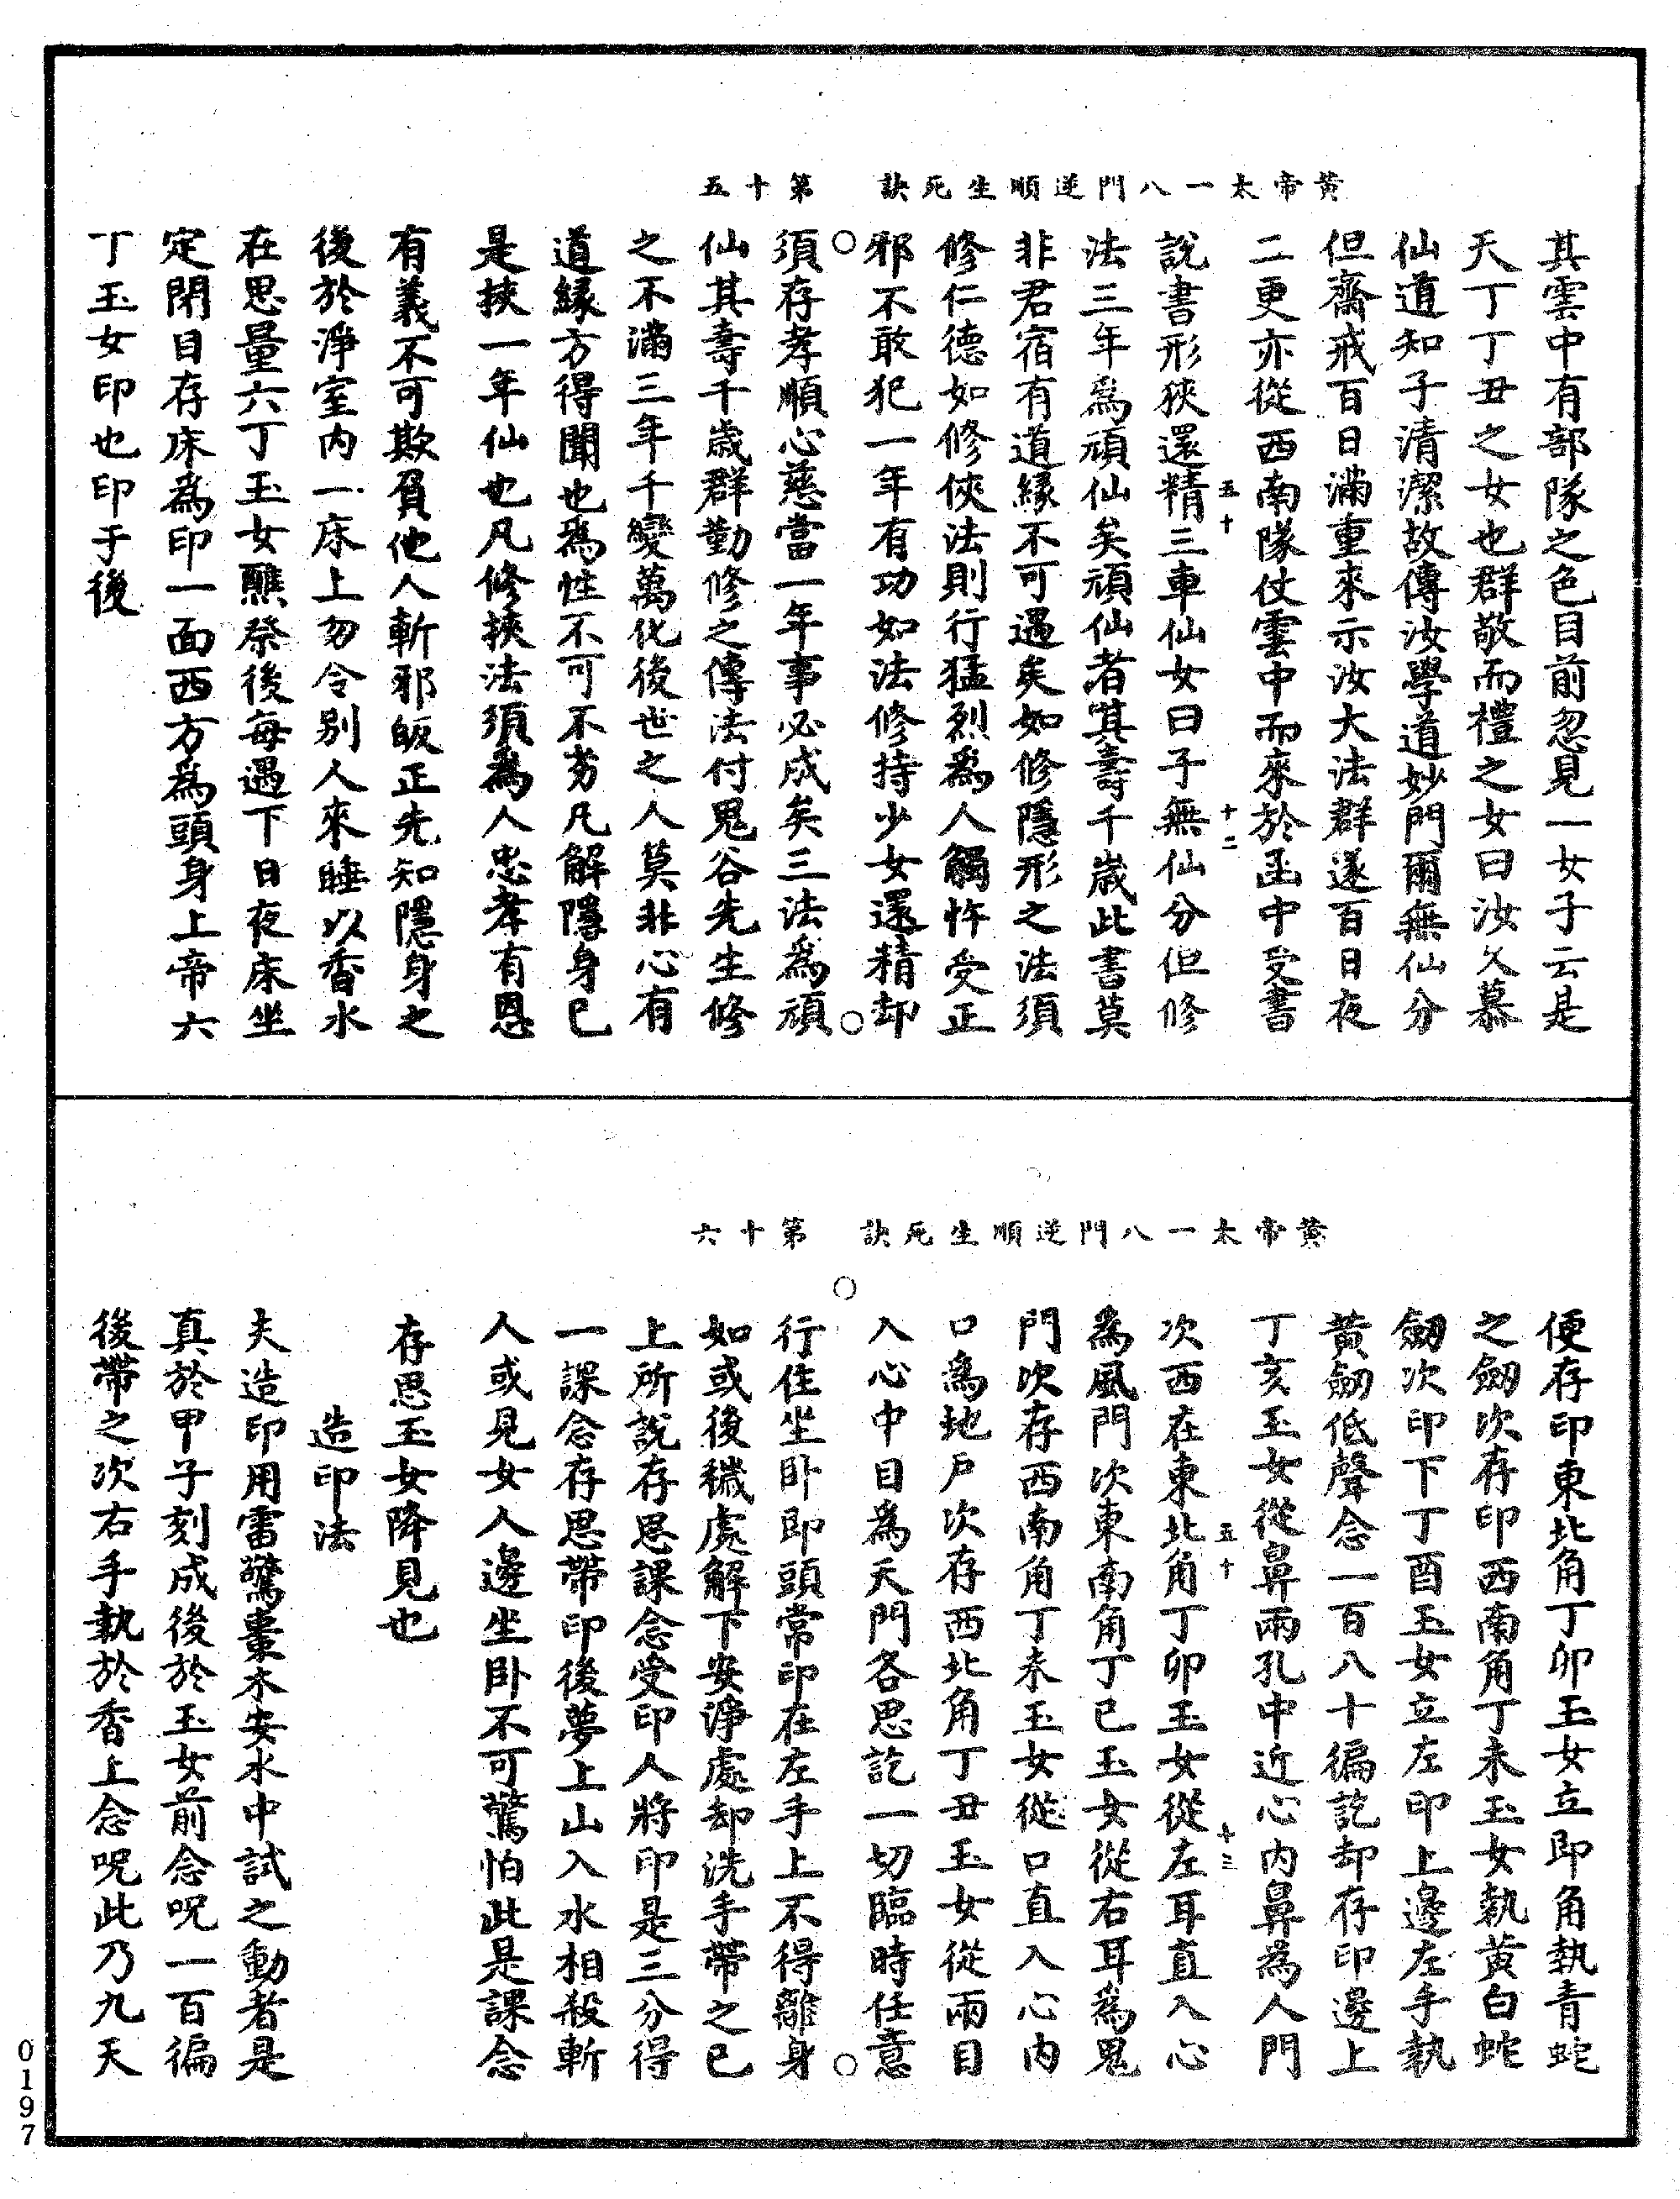 黃帝太一八門逆順生死訣　第十五
其雲中有部隊之色目前忽見一女子云是
天丁丁丑之女也群敬而禮之女曰汝久慕
仙道知子清潔故傳汝學道妙門爾無仙分
但齋戒百日滿重來示汝大法群遂百日夜
二更亦從西南隊仗雲中而來於函中受書
五十
十二
說書形狹還精三車仙女曰子無仙分但修
法三年為頑仙矣頑仙者其壽千歲此書莫
非君宿有道緣不可遇矣如修隱形之法須
修仁德如修俠法則行猛烈為人觸忤受正
邪不敢犯一年有功如法修持少女還精却
須存孝順心慈當一年事必成矣三法為頑
仙其壽千歲群勤修之傳法付鬼谷先生修
之不滿三年千變萬化後世之人莫非心有
道緣方得聞也為性不可不劣凡解隱身已
是挾一年仙也凡修挾法須為人忠孝有恩
有義不可欺負他人斬邪皈正先知隱身之
後於淨室内一床上勿令别人來睡以香水
在思量六丁玉女醮祭後每遇下日夜床坐
定閉目存床為印一面西方為頭身上帝六
丁玉女印也印于後
黃帝太一八門逆順生死訣　第十六
便存印東北角丁卯玉女立即角執青蛇
之劒次存印西南角丁未玉女執黃白蛇
劒次印下丁酉玉女立左印上邊左手執
黃劒低聲念一百八十徧訖却存印邊上
丁亥玉女從鼻兩孔中近心内鼻為人門
五十
十三
次西在東北角丁卯玉女從左耳直入心
為風門次東南角丁已玉女從右耳為鬼
門次存西南角丁未玉女從口直入心内
口為地戶次存西北角丁丑玉女從兩目
入心中目為天門各思訖一切臨時任意
行住坐卧即頭常印在左手上不得離身
如或後穢處解下安淨處却洗手帶之已
上所說存思課念受印人將印是三分得
一課念存思帶印後夢上山入水相殺斬
人或見女人邊坐卧不可驚怕此是課念
存思玉女降見也
造印法
夫造印用雷驚棗木安水中試之動者是
真於甲子刻成後於玉女前念呪一百徧
後帶之次右手執於香上念呪此乃九天
0197